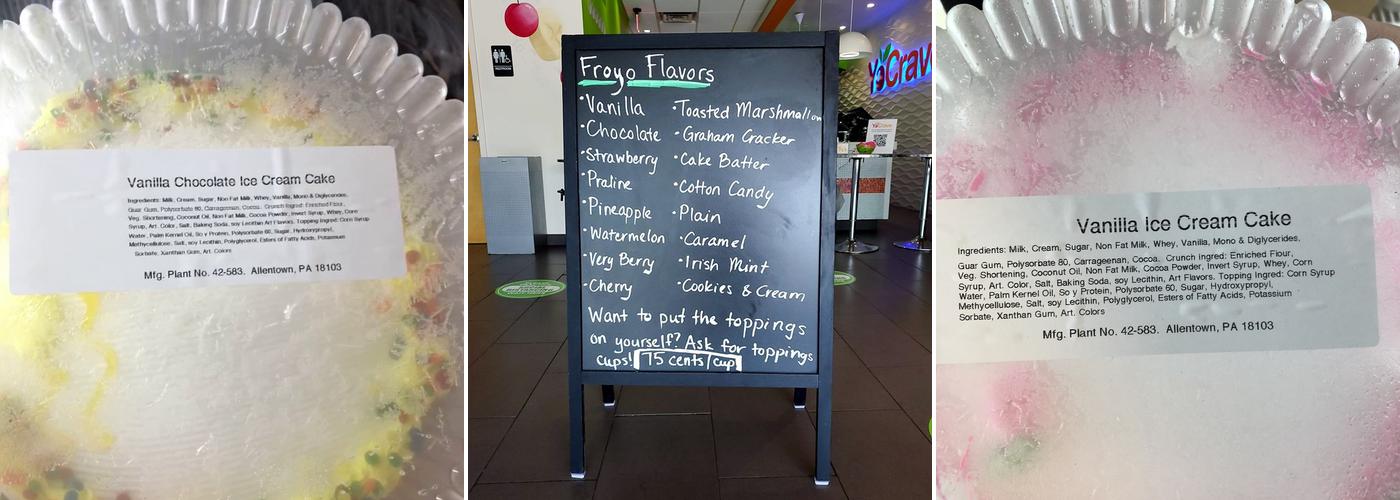 Vanilla Chocolate Ice Cream Cake
Ingredients: Milk, Cream, Sugar, Non Fat Milk, Whey, Vanilla, Mono & Diglycerides,
Guar Gum, Polysorbate 80, Carrageenan, Cocoa. Crunch Ingred: Enriched Flour,
Veg. Shortening, Coconut Oil, Non Fat Milk, Cocoa Powder, Invert Syrup, Whey, Corn
Syrup, Art. Color, Salt, Baking Soda, soy Lecithin Art Flavors. Topping Ingred: Corn Syrup
Water, Palm Kernel Oil, So y Protein, Polysorbate 60, Sugar, Hydroxypropyl,
Methycellulose, Salt, soy Lecithin, Polyglycerol, Esters of Fatty Acids, Potassium
Sorbate, Xanthan Gum, Art. Colors
Mfg. Plant No. 42-583. Allentown, PA 18103
Froyo Flavors
•Vanilla
•Chocolate
•Strawberry
•Praline
•Pineapple
•Watermelon
•Very Berry
•Cherry
•Toasted Marshmallow
•Graham Cracker
•Cake Batter
•Cotton Candy
•Plain
•Caramel
•Irish Mint
•Cookies & Cream
Want to put the toppings
on yourself? Ask for toppings
cups! 75 cents/cup
YoCrave
Vanilla Ice Cream Cake
Ingredients: Milk, Cream, Sugar, Non Fat Milk, Whey, Vanilla, Mono & Diglycerides,
Guar Gum, Polysorbate 80, Carrageenan, Cocoa. Crunch ingred: Enriched Flour,
Veg. Shortening, Coconut Oil, Non Fat Milk, Cocoa Powder, Invert Syrup, Whey, Corn
Syrup, Art. Color, Salt, Baking Soda, soy Lecithin, Art Flavors. Topping Ingred: Corn Syrup
Water, Palm Kernel Oil, So y Protein, Polysorbate 60, Sugar, Hydroxypropyl,
Methycellulose, Salt, soy Lecithin, Polyglycerol, Esters of Fatty Acids, Potassium
Sorbate, Xanthan Gum, Art. Colors
Mfg. Plant No. 42-583. Allentown, PA 18103